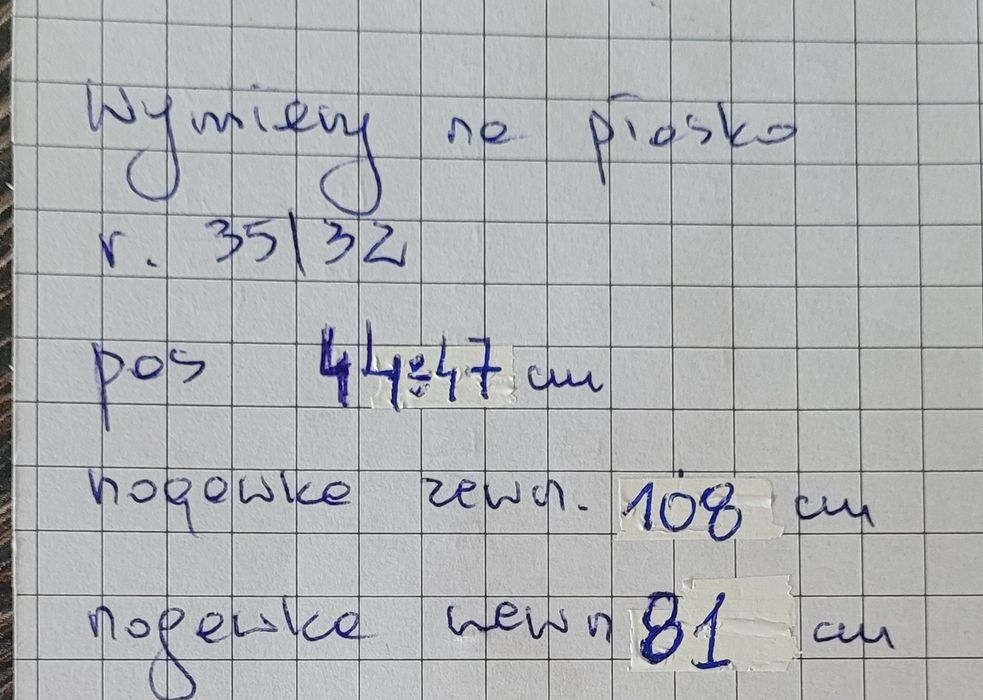 Wymiary na płasko
r. 35/32
pas 44÷47 cm
nogawka zewn. 108 cm
nogawka wewn 81 cm